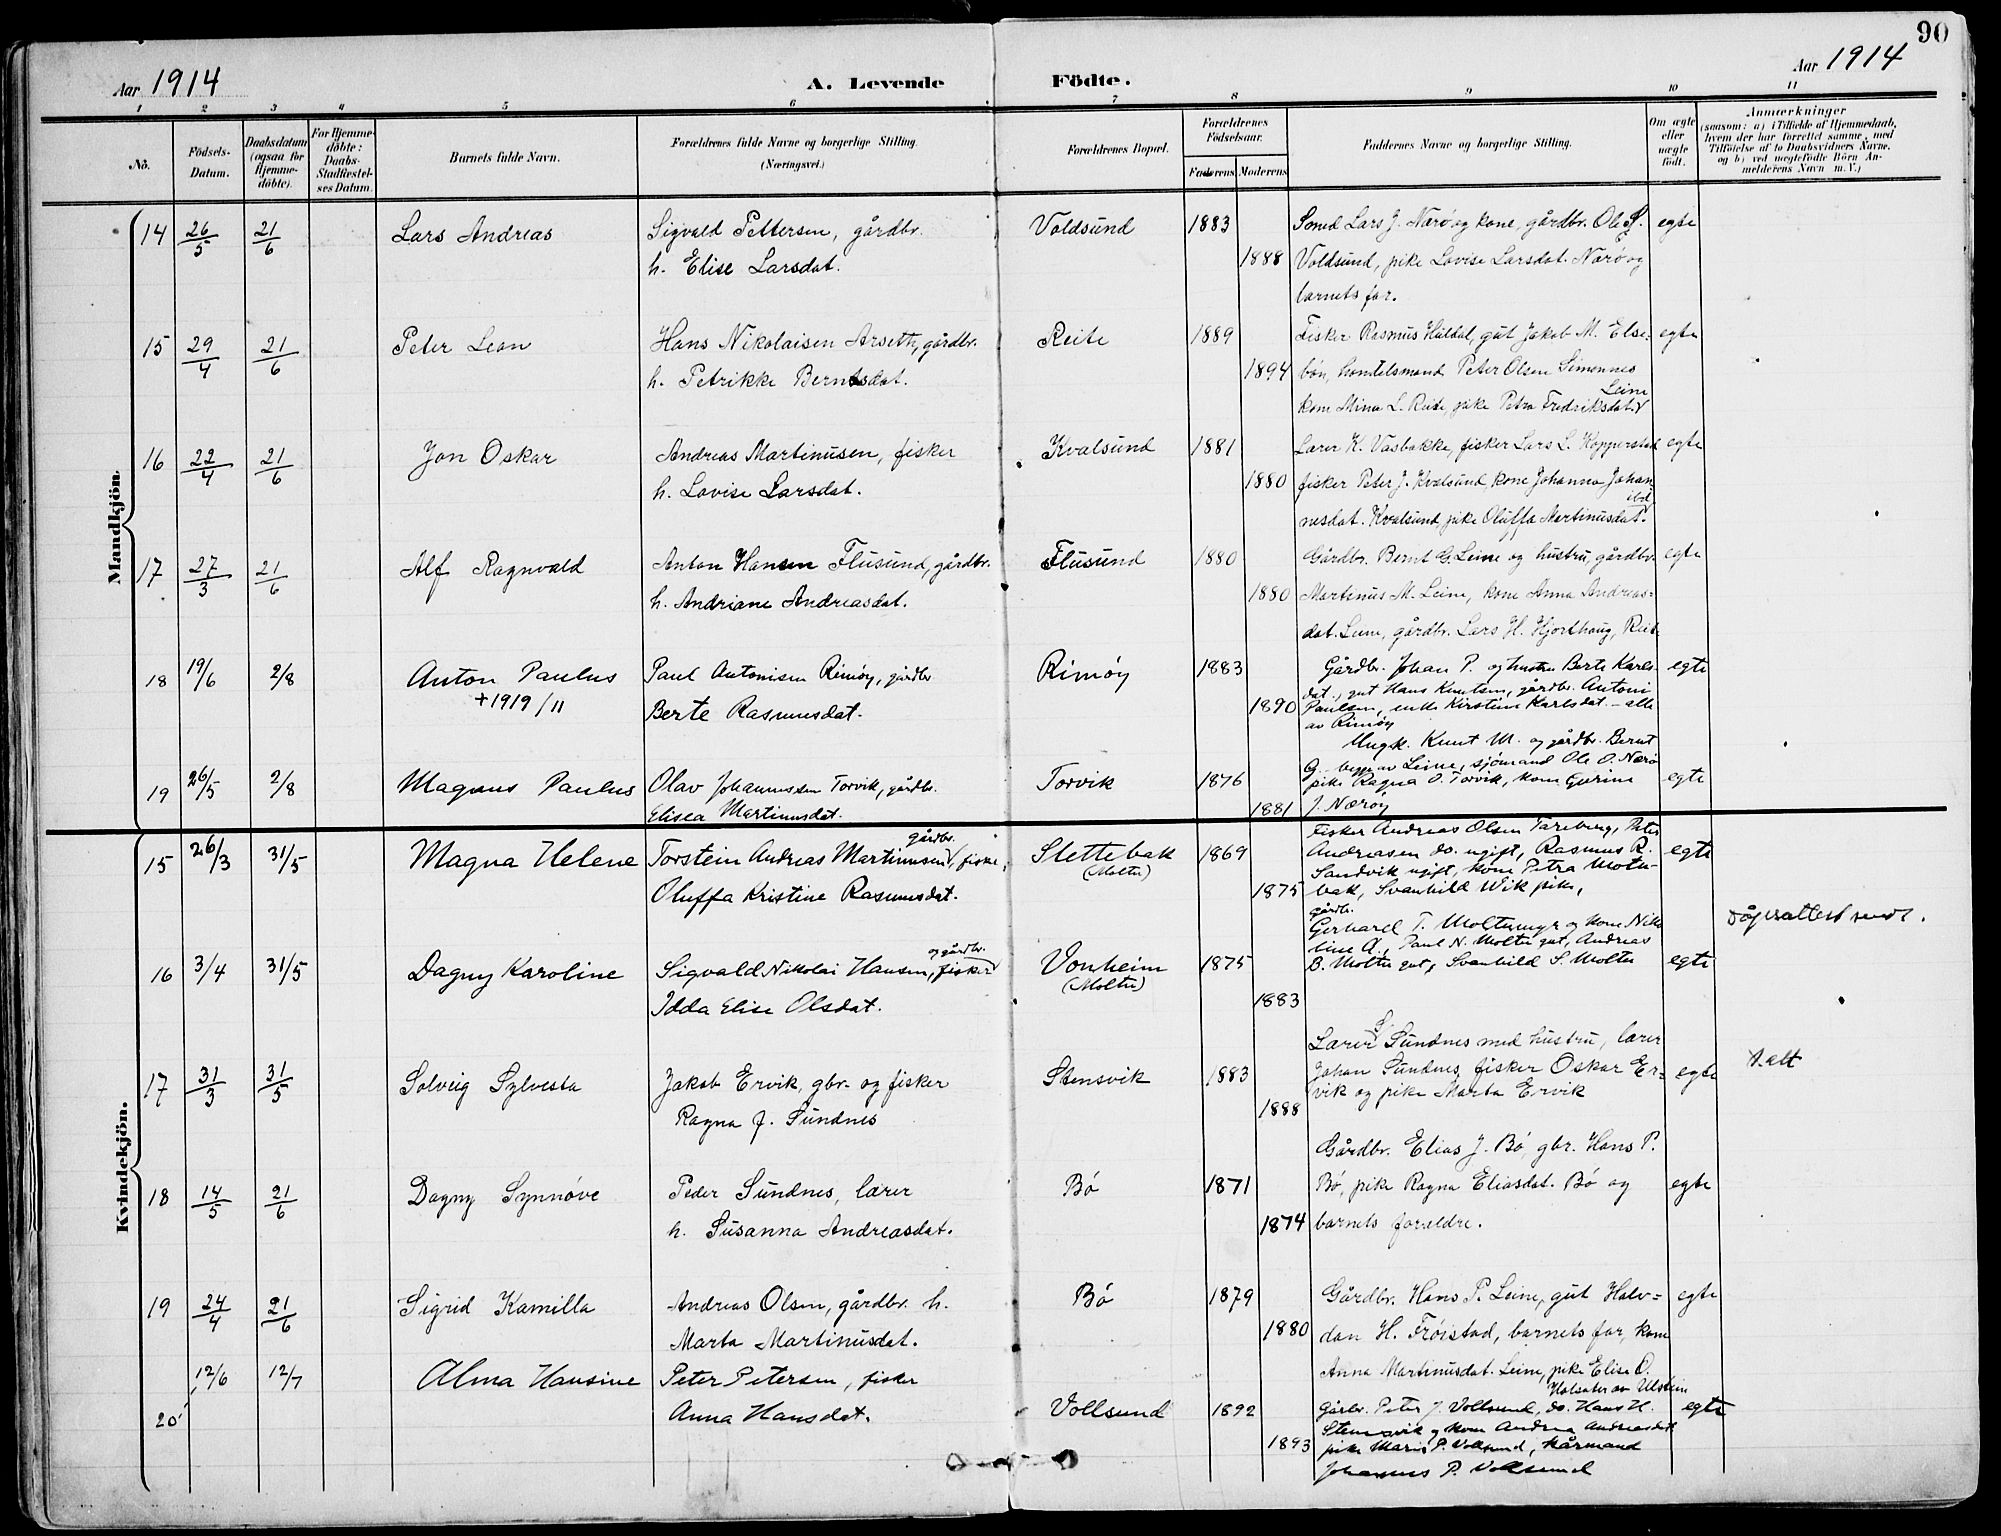 90
Aar 1914
A. Levende Födte.
Aar 1914
1 2 3 4 5 6 7 8 9 10 11
No.
Födsels-Datum.
Daabsdatum (ogsaa for Hjemme-döbte).
For Hjemme-döbte: Daabs-Stadfestel-ses Datum.
Barnets fulde Navn.
Forældrenes fulde Navne og borgerlige Stilling.
(Næringsvei.)
Forældrenes Bopæl.
Forældrenes Födselsaar.
Faderens Moderens
Faddernes Navne og borgerlige Stilling.
Om ægte eller uægte födt.
Anmærkninger
(saasom: a) i Tilfælde af Hjemmedaab,
hvem der har forrettet samme, med
Tilföielse af to Daabsvidners Navne,
og b) ved uægtefödte Börn An-
melderens Navn m. V.)
Mandkjön.
14 26/5 21/6 Lars Andreas Sigvald Pettersen, gårdbr. Voldsund 1883 Smed Lars J. Nærö og kone, gårdbr. Ole S. egte
h. Elise Larsdat. 1888 Voldsund, pike Lovise Larsdat. Nærö og
barnets far.
15 29/4 21/6 Peter Leon Hans Nikolaisen Årseth, gårdbr. Reite 1889 Fisker Rasmus Huldal, gut Jakob M. Else- egte
h. Petrikke Berntsdat. 1894 bön, handelsmand Peter Olsen Simonnes
kone Mina L. Reite, pike Petra Fredriksdat. Leine
16 22/4 21/6 Jon Oskar Andreas Martinusen, fisker Kvalsund 1881 Lærer K. Vasbakke, fisker Lars L. Kopperstad egte
h. Lovise Larsdat. 1880 fisker Peter J. Kvalsund, kone Johanna Johan-
nesdat. Kvalsund, pike Oluffa Martinusdat. ibd
17 27/3 21/6 Alf Ragnvald Anton Hansen Flusund, gårdbr. Flusund 1880 Gårdbr. Bernt G. Leine og hustru, gårdbr. egte
h. Andriane Andreasdat. 1880 Martinus M. Leine, kone Anna Andreas-
dat. Leine, gårdbr. Lars H. Hjorthaug, Reite
18 19/6 2/8 Anton Paulus Paul Antonisen Rimöy, gårdbr Rimöy 1883 Gårdbr. Johan P. og hustru Berte Karls- egte
+ 1919/11 Berte Rasmusdat. 1890 dat., gut Hans Knutsen, gårdbr. Antoni
Paulsen, enke Kirstine Karlsdat. – alle
av Rimöy
19 26/5 2/8 Magnus Paulus Olav Johannessen Torvik, gårdbr. Torvik 1876 Ungk. Knut M. og gårdbr. Bernt egte
G. begge av Leine, sjömand Ole O. Nærö
pike Ragna O. Torvik, kone Gurine
Elisea Martinusdat. 1881 J. Næröy
Kvindekjön.
15 26/3 31/5 Magna Helene Torstein Andreas Martinusen, gårdbr. fisker, Slettebak (Moltu) 1869 Fisker Andreas Olsen Tareberg, Peter egte
Andreasen do. ugift, Rasmus R.
Sandvik ugift, kone Petra Moltu-
Oluffa Kristine Rasmusdat. 1875 bak, Svanhild Wik pike,
16 3/4 31/5 Dagny Karoline Sigvald Nikolai Hansen, fisker og gårdbr. Vonheim (Moltu) 1875 gårdbr. egte
Gerhard T. Moltumyr og kone Niko
line A., Paul N. Moltu gut, Andreas
B. Moltu gut, Svanhild S. Moltu
dåpsattest sendt.
Idda Elise Olsdat. 1883
17 31/3 31/5 Solveig Sylvesta Jakob Ervik, gbr. og fisker Stensvik 1883 Lærer S. Sundnes med hustru, lærer egte
Johan Sundnes, fisker Oskar Er-
vik og pike Marta Ervik
Ragna J. Sundnes 1888
18 14/5 21/6 Dagny Synnöve Peder Sundnes, lærer Bö 1871 Gårdbr. Elias J. Bö, gbr. Hans P. egte
Bö, pike Ragna Eliasdat. Bö og
h. Susanna Andreasdat. 1874 barnets forældre.
19 24/4 21/6 Sigrid Kamilla Andreas Olsen, gårdbr. h. Bö 1879 Gårdbr. Hans P. Leine, gut Halv- egte
Marta Martinusdat. 1880 dan H. Fröistad, barnets far, kone
Anna Martinusdat. Leine, pike Elise O.
20 12/6 12/7 Alma Hansine Peter Petersen, fisker Vollsund 1892 Gårbr. Peter J. Vollsund, do. Hans H. egte
Anna Hansdat. 1893 Stensvik og kone Andrea Andreasdat
pike Marie P. Vollsund, kårmand
Johannes P. Vollsund